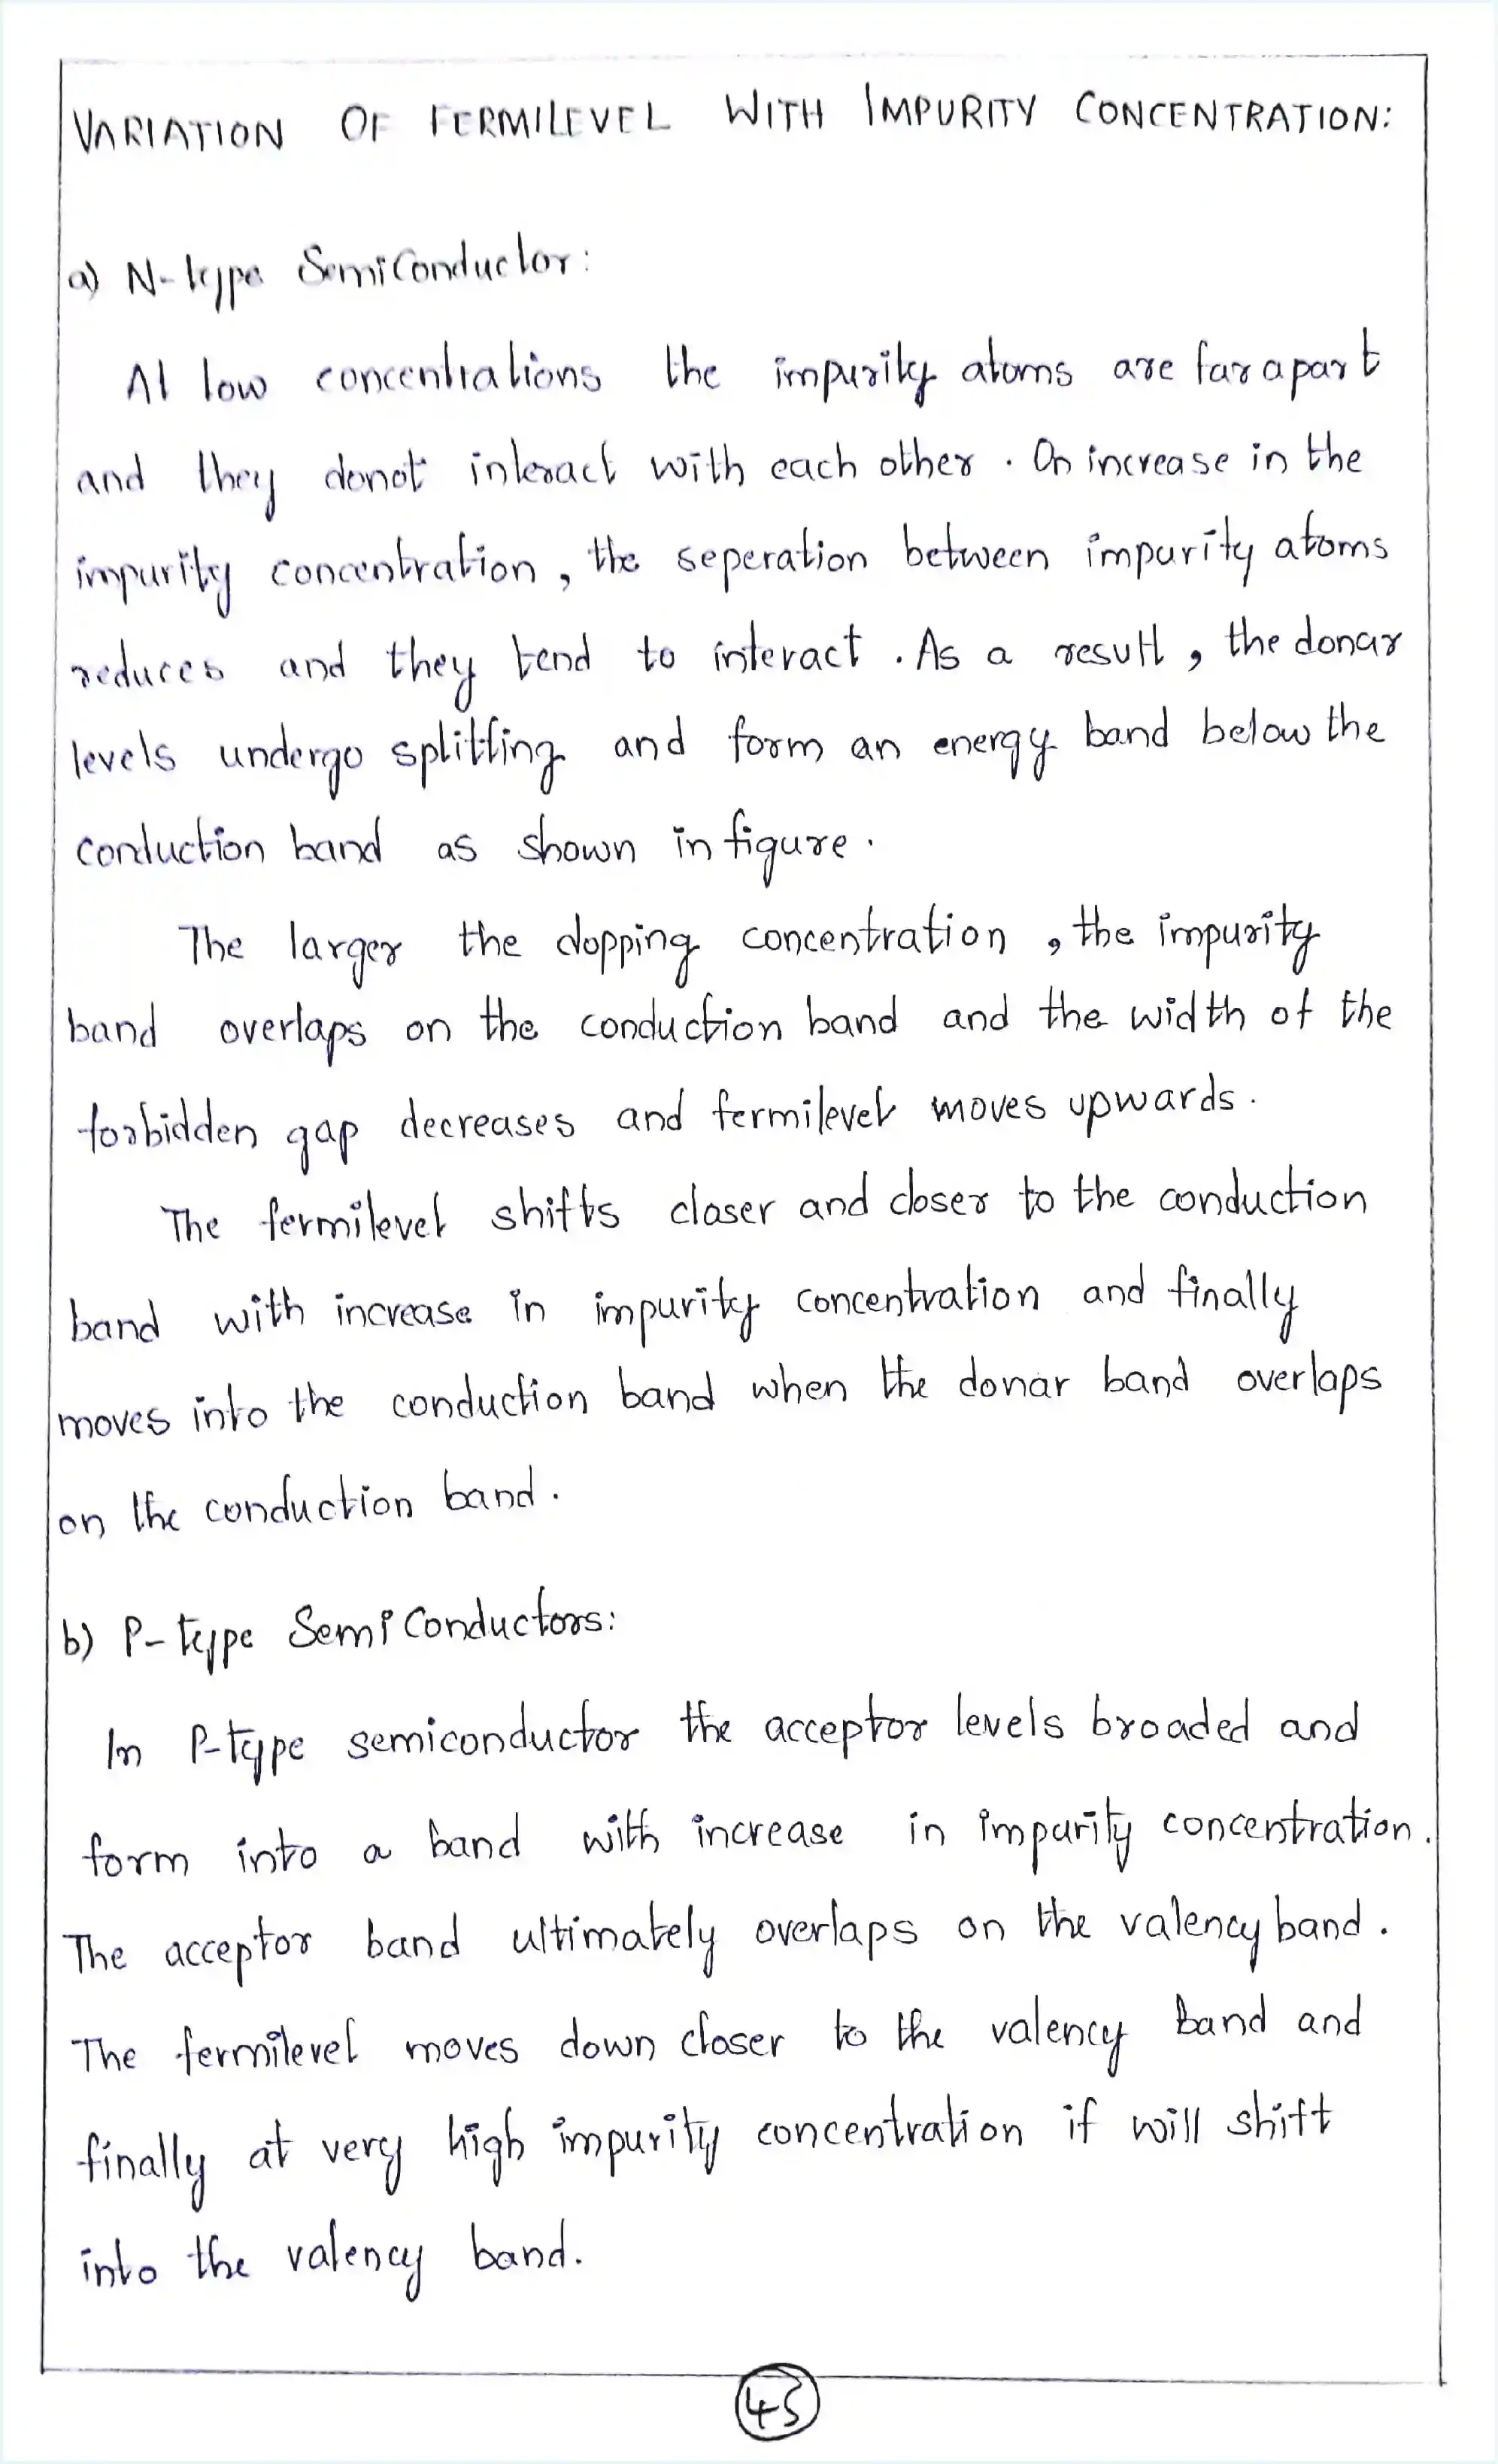 VARIATION OF FERMILEVEL WITH IMPURITY CONCENTRATION:
a) N-type SemiConductor:
At low concentrations the impurity atoms are far apart
and they donot interact with each other. On increase in the
impurity concentration, the seperation between impurity atoms
reduces and they tend to interact. As a result, the donar
levels undergo splitting and form an energy band below the
conduction band as shown in figure.
The larger the dopping concentration, the impurity
band overlaps on the conduction band and the width of the
forbidden gap decreases and fermilevel moves upwards.
The fermilevel shifts closer and closer to the conduction
band with increase in impurity concentration and finally
moves into the conduction band when the donar band overlaps
on the conduction band.
b) P-type SemiConductors:
In P-type semiconductor the acceptor levels broaded and
form into a band with increase in impurity concentration.
The acceptor band ultimately overlaps on the valency band.
The fermilevel moves down closer to the valency band and
finally at very high impurity concentration if will shift
into the valency band.
43